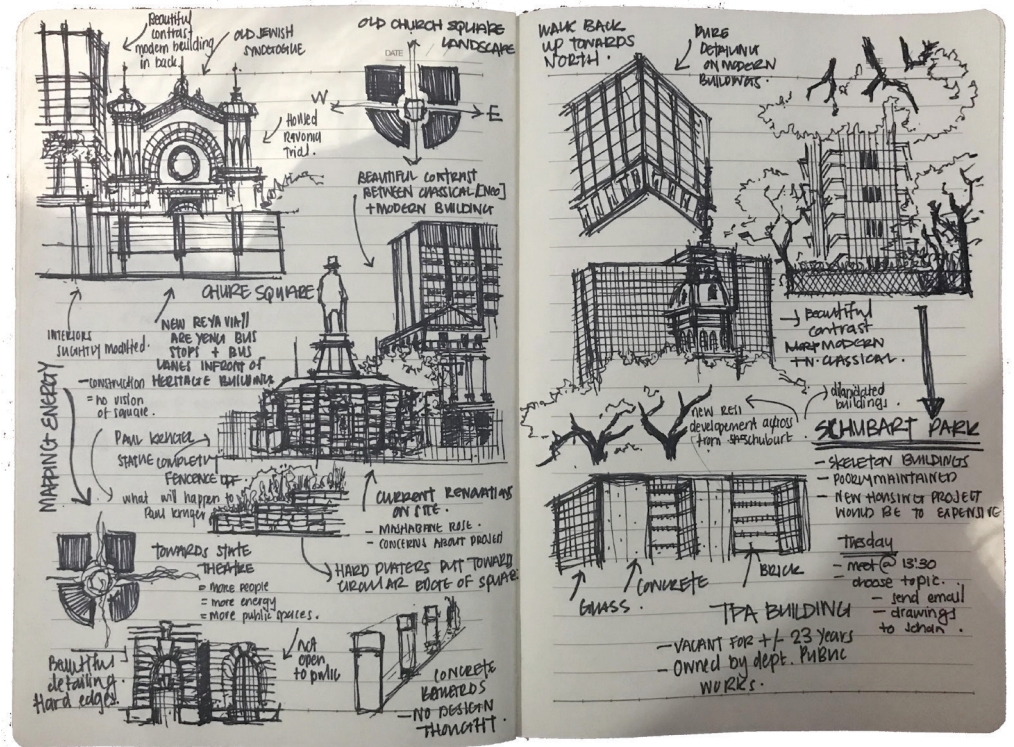 Beautiful
contrast
modern building
in back.
OLD JEWISH
SYNCTOGUE
Holled
Ravonia
Trial.
OLD CHURCH SQUARE
LANDSCAPE
DATE
W
E
BEAUTIFUL CONTRAST
BETWEEN CLASSICAL [NEO]
+ MODERN BUILDING
CHURE SQUARE
INTERIORS
SLIGHTLY MODIFIED.
NEW REYA VIAJ
ARE YENG BUS
STOPS + BUS
LANES INFRONT OF
HERITAGE BUILDING
- construction
= no vision
of square.
MAPPING ENERGY
PAUL KRUGER
STATUE COMPLETLY
FENCENCE OFF
what will happen to
Paul Kruger
CURRENT RENOVATIONS
ON SITE.
- MASHABANE ROSE.
- CONCERNS ABOUT PROJECT
TOWARDS STATE
THEATRE
= more people
= more energy
= more public spaces.
HARD PLATERS PUT TOWARD
CIRCULAR EDGE OF SQUARE
Beautiful
detailing
Hard edges.
not
open
to public
CONCRETE
BOLLARDS
- NO DESIGN
THOUGHT.
WALK BACK
UP TOWARDS
NORTH.
PURE
DETAILING
ON MODERN
BUILDINGS.
Beautiful
contrast
MODERN
+ N-CLASSICAL.
new RESI
developement across
from Schubart
dilapidated
buildings.
SCHUBART PARK
- SKELETON BUILDINGS
- POORLY MAINTAINED
- NEW HOUSING PROJECT
WOULD BE TO EXPENSIVE
GLASS.
CONCRETE
BRICK
Tuesday
- meet @ 13:30
- choose topic.
- send email
- drawings
to Johan.
TPA BUILDING
- VACANT FOR +/- 23 years
- OWNED by dept. PUBLIC
WORKS.